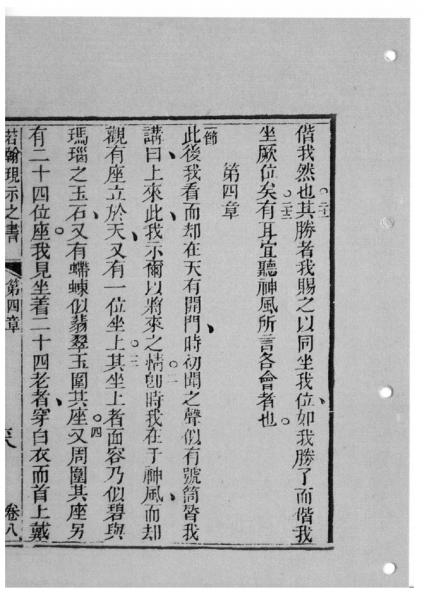 偕我然也○廿一其勝者我賜之以同坐我位如我勝了而偕我
坐厥位矣○廿二有耳宜聽神風所言各會者也○
第四章
一節此後我看而却在天有開門時初聞之聲似有號筒皆我
講曰上來此我示爾以將來之情○二卽時我在于神風而却
觀有座立於天又有一位坐上○三其坐上者面容乃似碧與
瑪瑙之玉石又有螮蝀似翡翠玉圍其座○四又周圍其座另
有二十四位座○我見坐着二十四老者穿白衣而首上戴
若翰現示之書 第四章 卷八